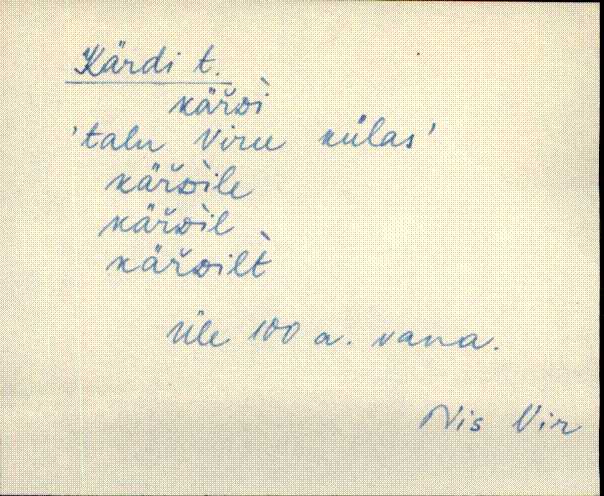 Kärdi t.
käřᴅì
'talu Viru külas'
käřᴅìle
käřᴅìl
käřᴅilt̀
Üle 100 a. vana.
Nis Vir